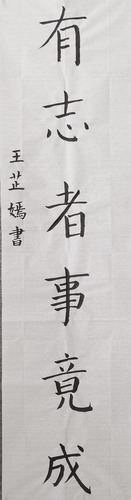 有志者事竟成
王芷嫣書